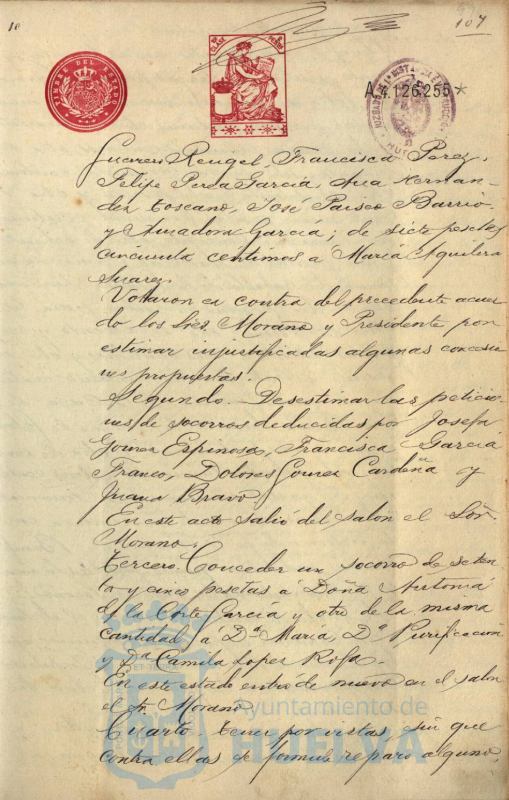 10
107
TIMBRE DEL ESTADO
CLASE
A.4.126.255*
Suarez Rengel, Francisca Perez,
Felipe Perea García, Ana Hernan-
dez Toscano, José Barrio
y Amadora García; de siete pesetas
cincuenta centimos a María Aguilera
Suarez.
Votaron en contra del precedente acuer-
do los Sres. Morano y Presidente por
estimar injustificadas algunas concesio-
nes propuestas.
Segundo. Desestimar las peticio-
nes de socorros deducidas por Josefa
Gomez Espinosa, Francisca García
Franco, Dolores Gomez Cardeña y
Juana Bravo
En este acto salió del salon el Señr.
Morano.
Tercero. Conceder un socorro de seten-
ta y cinco pesetas á Doña Antonia
de la Corte García y otro de la misma
cantidad á Dª María, Dª Purificacion
y Dª Camila Lopez Rofa.
En este estado entró de nuevo en el salon
el Sr. Morano
Cuarto. Tener por vistas, sin que
contra ellas se formule reparo alguno,
Ayuntamiento de
HUELVA